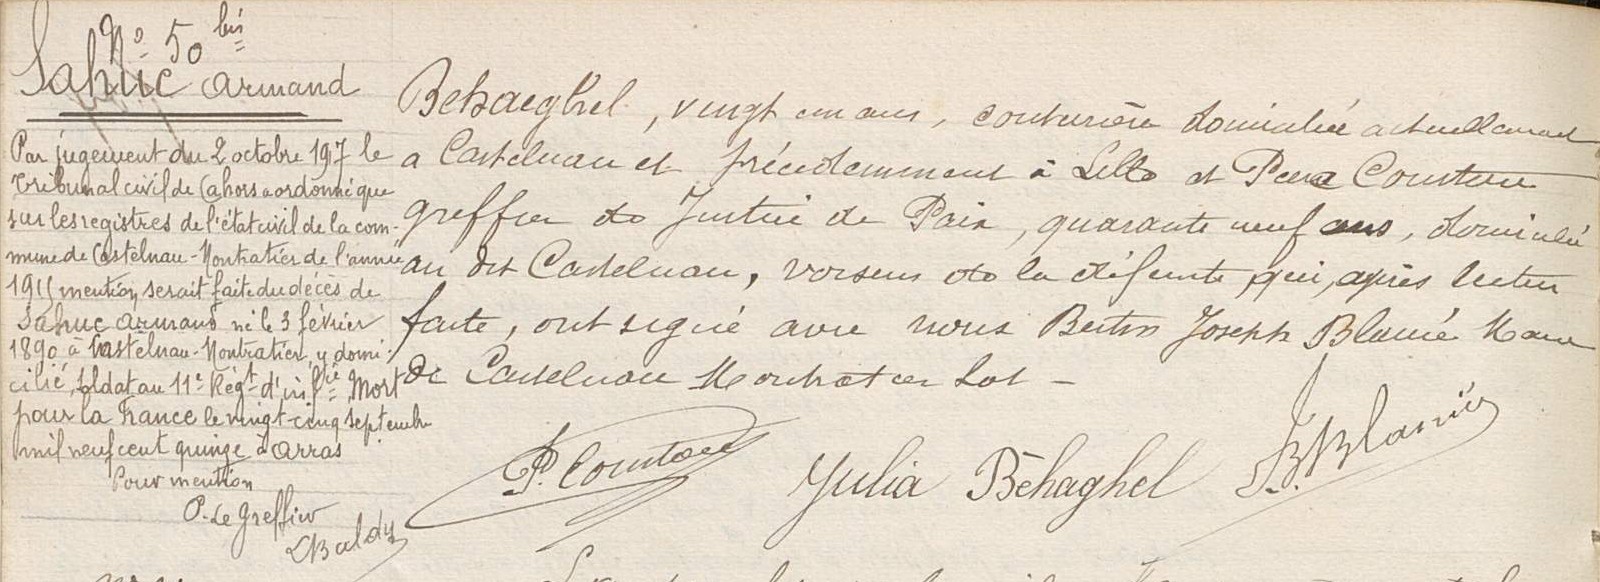 N° 50 bis
Sahuc Armand
Par jugement du 2 octobre 1917 le
tribunal civil de Cahors a ordonné que
sur les registres de l'état civil de la com-
mune de Castelnau-Montratier de l'année
1915 mention serait faite du décès de
Sahuc Armand né le 3 février
1890 à Castelnau-Montratier, y domi-
cilié, soldat au 11e Régt d'infrie Mort
pour la France le vingt-cinq septembre
mil neuf cent quinze à Arras
Pour mention
P. Le Greffier
Baldy
Behaeghel, vingt un ans, couturière domiciliée actuellement
a Castelnau et précédemment à Lille et Coustou
greffier de Justice de Paix, quarante neuf ans, domicilié
au dit Castelnau, voisins de la défunte, qui, après lecture
faite, ont signé avec nous Bertin Joseph Blanié Maire
de Castelnau Montratier Lot -
P. Coustou
Julia Behaghel
B. Blanié